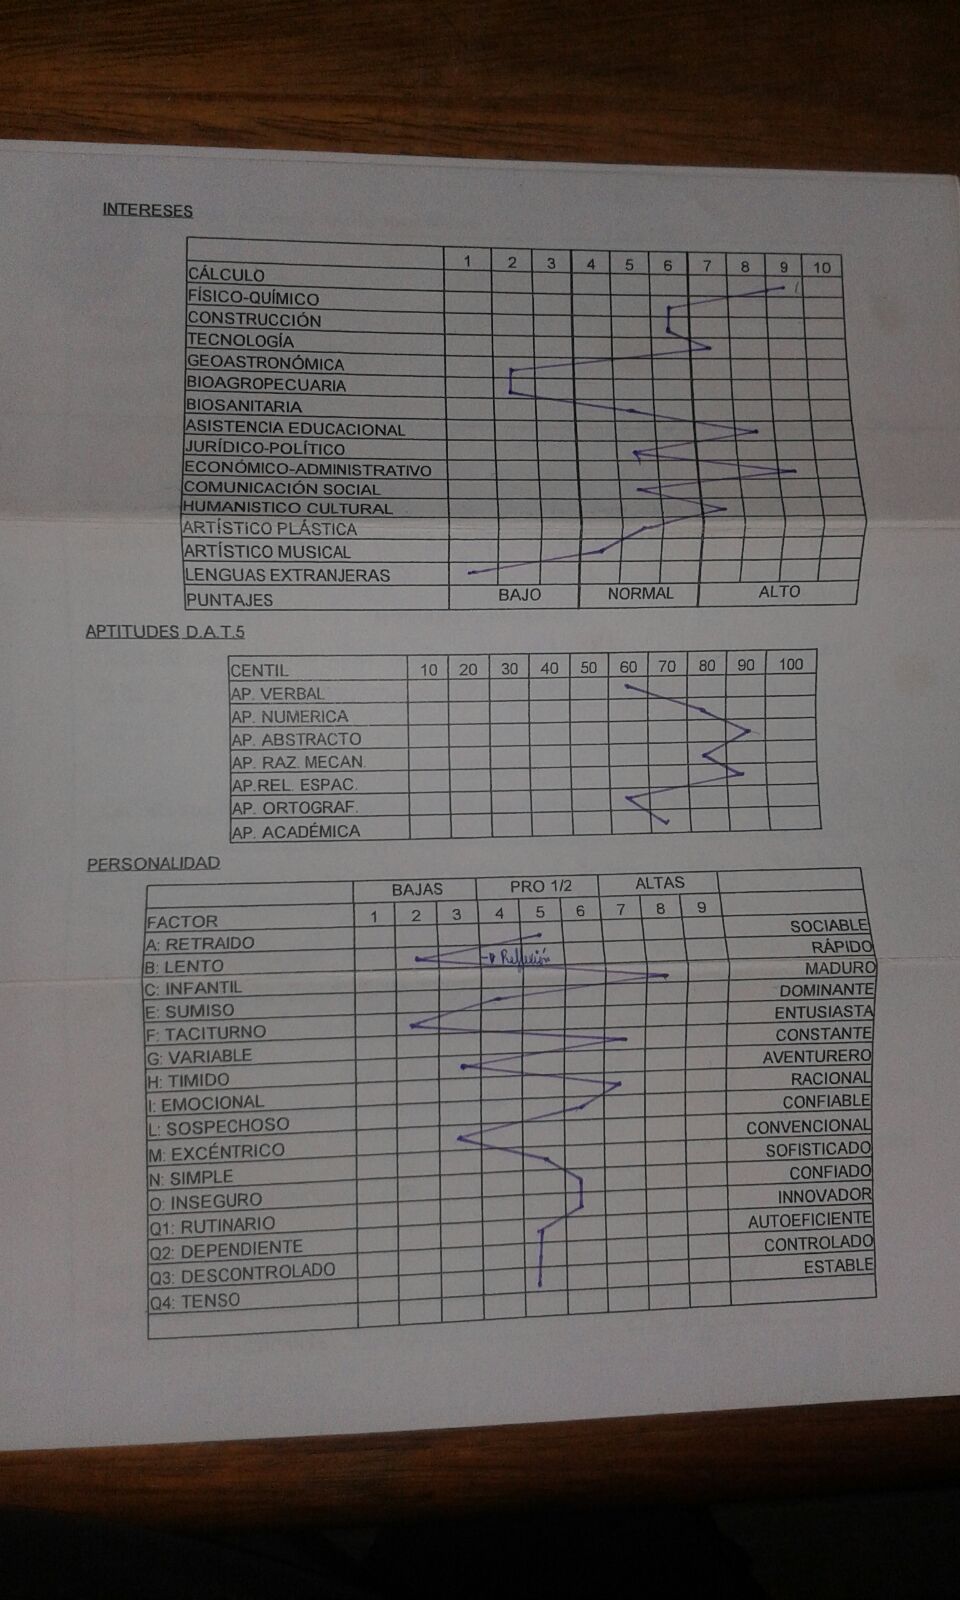 INTERESES
1 2 3 4 5 6 7 8 9 10
CÁLCULO
FÍSICO-QUÍMICO
CONSTRUCCIÓN
TECNOLOGÍA
GEOASTRONÓMICA
BIOAGROPECUARIA
BIOSANITARIA
ASISTENCIA EDUCACIONAL
JURÍDICO-POLÍTICO
ECONÓMICO-ADMINISTRATIVO
COMUNICACIÓN SOCIAL
HUMANISTICO CULTURAL
ARTÍSTICO PLÁSTICA
ARTÍSTICO MUSICAL
LENGUAS EXTRANJERAS
PUNTAJES BAJO NORMAL ALTO
APTITUDES D.A.T.5
CENTIL 10 20 30 40 50 60 70 80 90 100
AP. VERBAL
AP. NUMERICA
AP. ABSTRACTO
AP. RAZ. MECAN.
AP.REL. ESPAC.
AP. ORTOGRAF.
AP. ACADÉMICA
PERSONALIDAD
BAJAS PRO 1/2 ALTAS
FACTOR 1 2 3 4 5 6 7 8 9
A: RETRAIDO SOCIABLE
B: LENTO Reflexión RÁPIDO
C: INFANTIL MADURO
E: SUMISO DOMINANTE
F: TACITURNO ENTUSIASTA
G: VARIABLE CONSTANTE
H: TIMIDO AVENTURERO
I: EMOCIONAL RACIONAL
L: SOSPECHOSO CONFIABLE
M: EXCÉNTRICO CONVENCIONAL
N: SIMPLE SOFISTICADO
O: INSEGURO CONFIADO
Q1: RUTINARIO INNOVADOR
Q2: DEPENDIENTE AUTOEFICIENTE
Q3: DESCONTROLADO CONTROLADO
Q4: TENSO ESTABLE